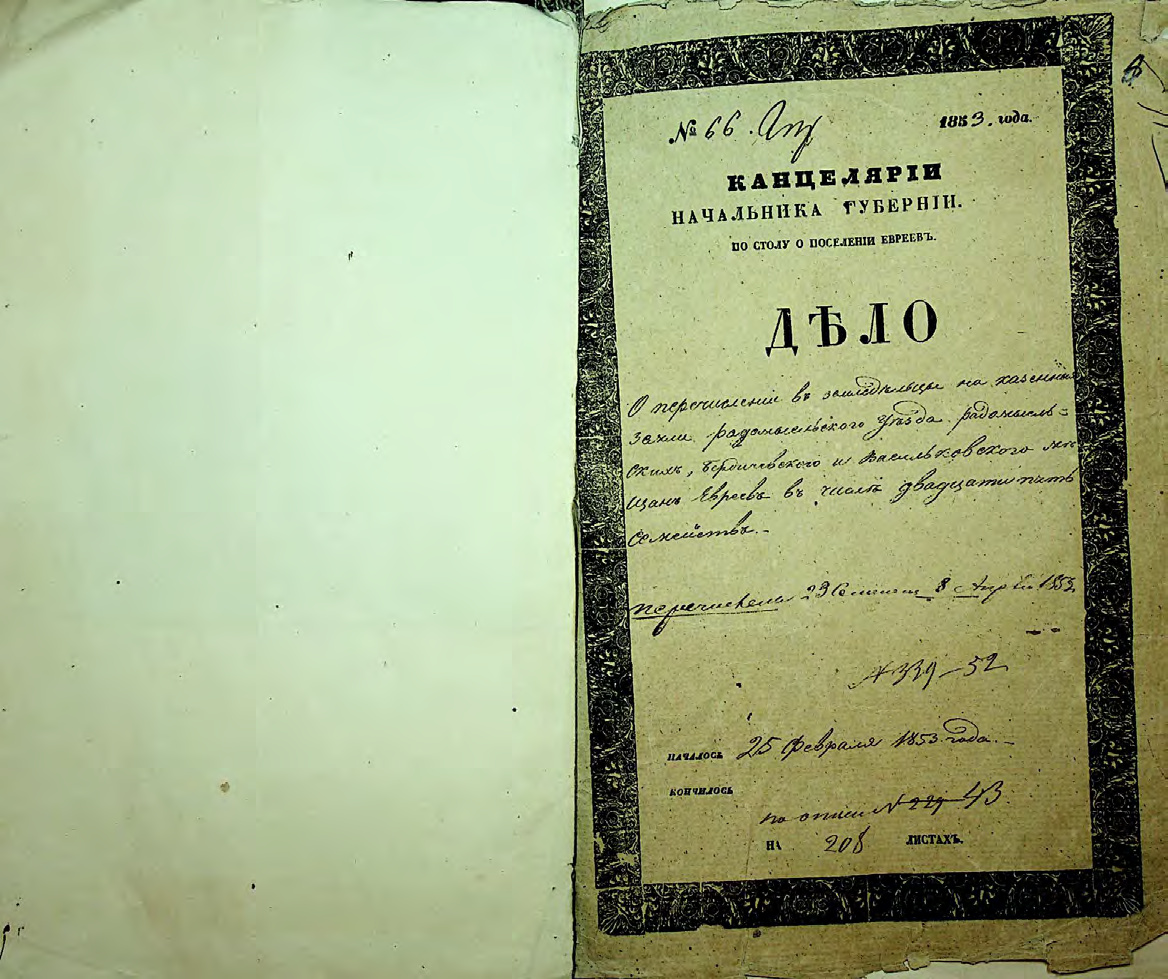 № 66. 1853. года.
КАНЦЕЛЯРІИ
НАЧАЛЬНИКА ГУБЕРНІИ.
ПО СТОЛУ О ПОСЕЛЕНІИ ЕВРЕЕВЪ.
ДѢЛО
О перечисленіи въ земледѣльцы на казенныя
земли радомысльского уѣзда радомысль=
скихъ, бердичевского и Васильковского мѣ
щанъ Евреевъ въ числѣ двадцати пять
семействъ.-
перечислены 23 8 1853.
№ 339-52
НАЧАЛОСЬ 25 февраля 1853 года.-
КОНЧИЛОСЬ
по описи № 229 43
НА 208 ЛИСТАХЪ.